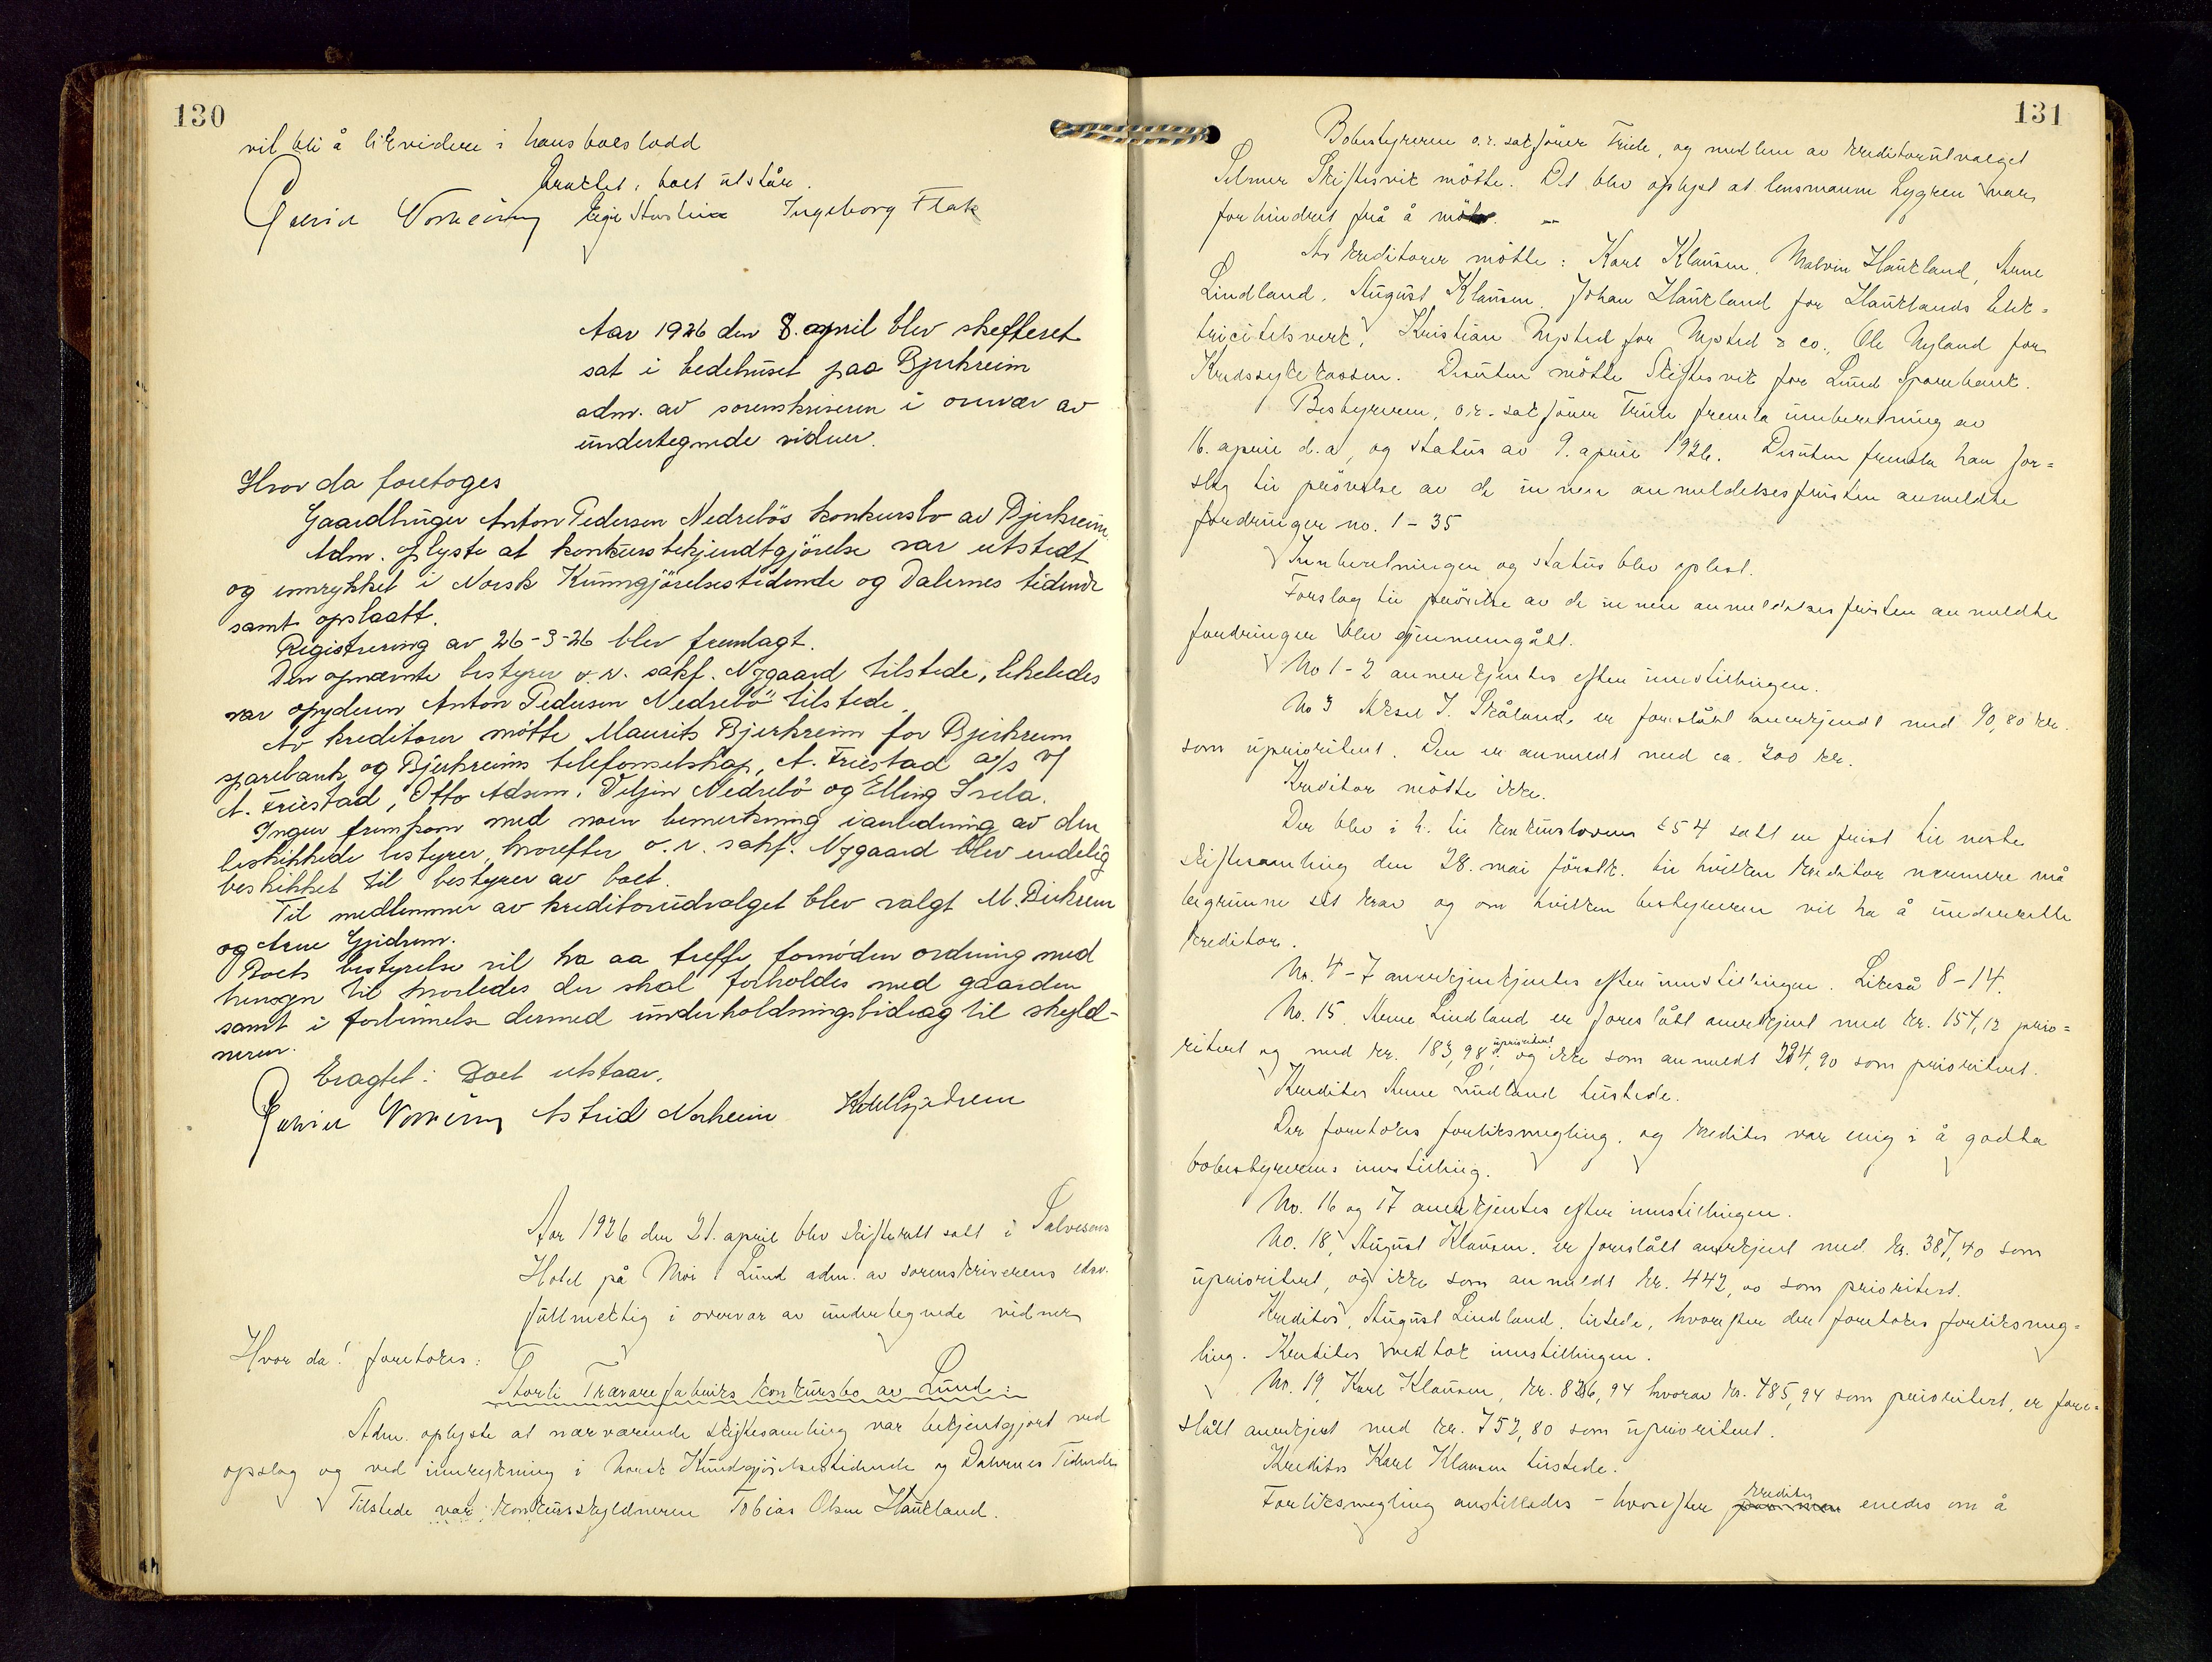 130
vil bli å likvidere i hans boeslodd
Eraktet: boet utstår.
Ingeborg Flak
Aar 1926 den 8. april blev skifteret
sat i bedehuset paa Bjerkreim
adm. av sorenskriveren i overvær av
undertegnede vidner.
Hvor da foretoges
Gaardbruger Anton Pedersen Nedrebös konkursbo av Bjerkreim.
Adm. oplyste at konkursbekjendtgjörelse var utstedt
og innrykket i Norsk Kunngjörelsestidende og Dalernes tidende
samt opslaatt.
Registrering av 26-3-26 blev fremlagt.
Den opnævnte bestyrer o.r. sakf. Nygaard tilstede, likeledes
var opbyderen Anton Pedersen Nedrebö tilstede.
Av kreditorer mötte Maurits Bjerkreim for Bjerkreim
sparebank og Bjerkreims telefonselskap, A. Friestad a/s v/
A. Friestad, Otto Adsem, Viljen Nedrebö og Elling Ivela.
Ingen fremkom med noen bemerkning i anledning av den
beskikkede bestyrer, hvorefter o.r. sakf. Nygaard blev endelig
beskikket til bestyrer av boet.
Til medlemmer av kreditorudvalget blev valgt M. Birkrem
og Arne Gjedrem.
Boets bestyrelse vil ha aa treffe fornöden ordning med
hensyn til hvorledes der skal forholdes med gaarden
samt i forbinnelse dermed underholdningsbidrag til skyld-
neren.
Eragtet: Boet utstaar.
Astrid Norheim Ketil Gjedrem
Aar 1926 den 21. april blev skifterett satt i Salvesens
Hotel på Moi i Lund adm. av sorenskriverens edsv.
fullmektig i overvær av undertegnede vidner
Hvor da! foretokes:
Storli Trævarefabriks konkursbo av Lund:
Adm. oplyste at nærværende skiftesamling var bekjentgjort ved
opslag og ved innrykning i Norsk Kundgjörelsestidende og Dalernes Tidende
Tilstede var konkursskyldneren Tobias Olsen Haukland.
131
Bobestyreren o.r. sakförer Friele, og medlem av kreditorutvalget
Selmer Skiftesvik mötte. Det blev oplyst at lensmann Lygren var
forhindret frå å möte. –
Av kreditorer mötte: Karl Klausen, Malvin Haukland, Arne
Lindland, August Klausen, Johan Haukland for Hauklands Elek-
tricitetsverk, Kristian Nysted for Nysted & co., Ole Nyland for
Kredssykekassen. Desuten mötte Skiftesvik for Lund Sparebank.
Bestyreren, o.r. sakförer Friele fremla innberetning av
16. april d.a., og status av 9. april 1926. Desuten fremla han for=
slag til prövelse av de innen anmeldelsesfristen anmeldte
fordringer no. 1 – 35
Innberetningen og status blev oplest.
Forslag til prövelse av de innen anmeldelsesfristen anmeldte
fordringer blev gjennemgått.
No 1 – 2 annerkjentes efter innstillingen.
No 3 Aksel I. Skåland, er foreslått anerkjendt med 90,80 kr.
som uprioritert. Den er anmeldt med ca. 200 kr.
Kreditor mötte ikke.
Der blev i h. til konkurslovens § 54 satt en frist til neste
skiftesamling den 28. mai förstk. til hvilken kreditor nærmere må
begrunne sitt krav og om hvilken bestyreren vil ha å underrette
kreditor.
No. 4 – 7 anerkjenkjentes efter innstillingen. Likeså 8 – 14.
No. 15. Arne Lindland er foreslått anerkjent med kr. 154,12 prio=
ritert og med kr. 183,98 uprioritert og ikke som anmeldt 294,90 som prioritert.
Kreditor Arne Lindland tilstede.
Der foretokes forliksmegling, og kreditor var enig i å godta
bobestyrerens innstilling.
No. 16 og 17 anerkjentes efter innstillingen.
No. 18, August Klausen, er foreslått anerkjent med kr. 387,40 som
uprioritert, og ikke som anmeldt kr. 442,00 som prioritert.
Kreditor, August Lindland, tilstede, hvorefter der foretokes forliksmeg=
ling. Kreditor vedtok innstillingen.
No. 19, Karl Klausen, kr. 826,94 hvorav kr. 485,94 som prioritert, er fore=
slått anerkjent med kr. 752,80 som uprioritert.
Kreditor Karl Klausen tilstede.
Forliksmegling anstilledes – hvorefter kreditor enedes om å